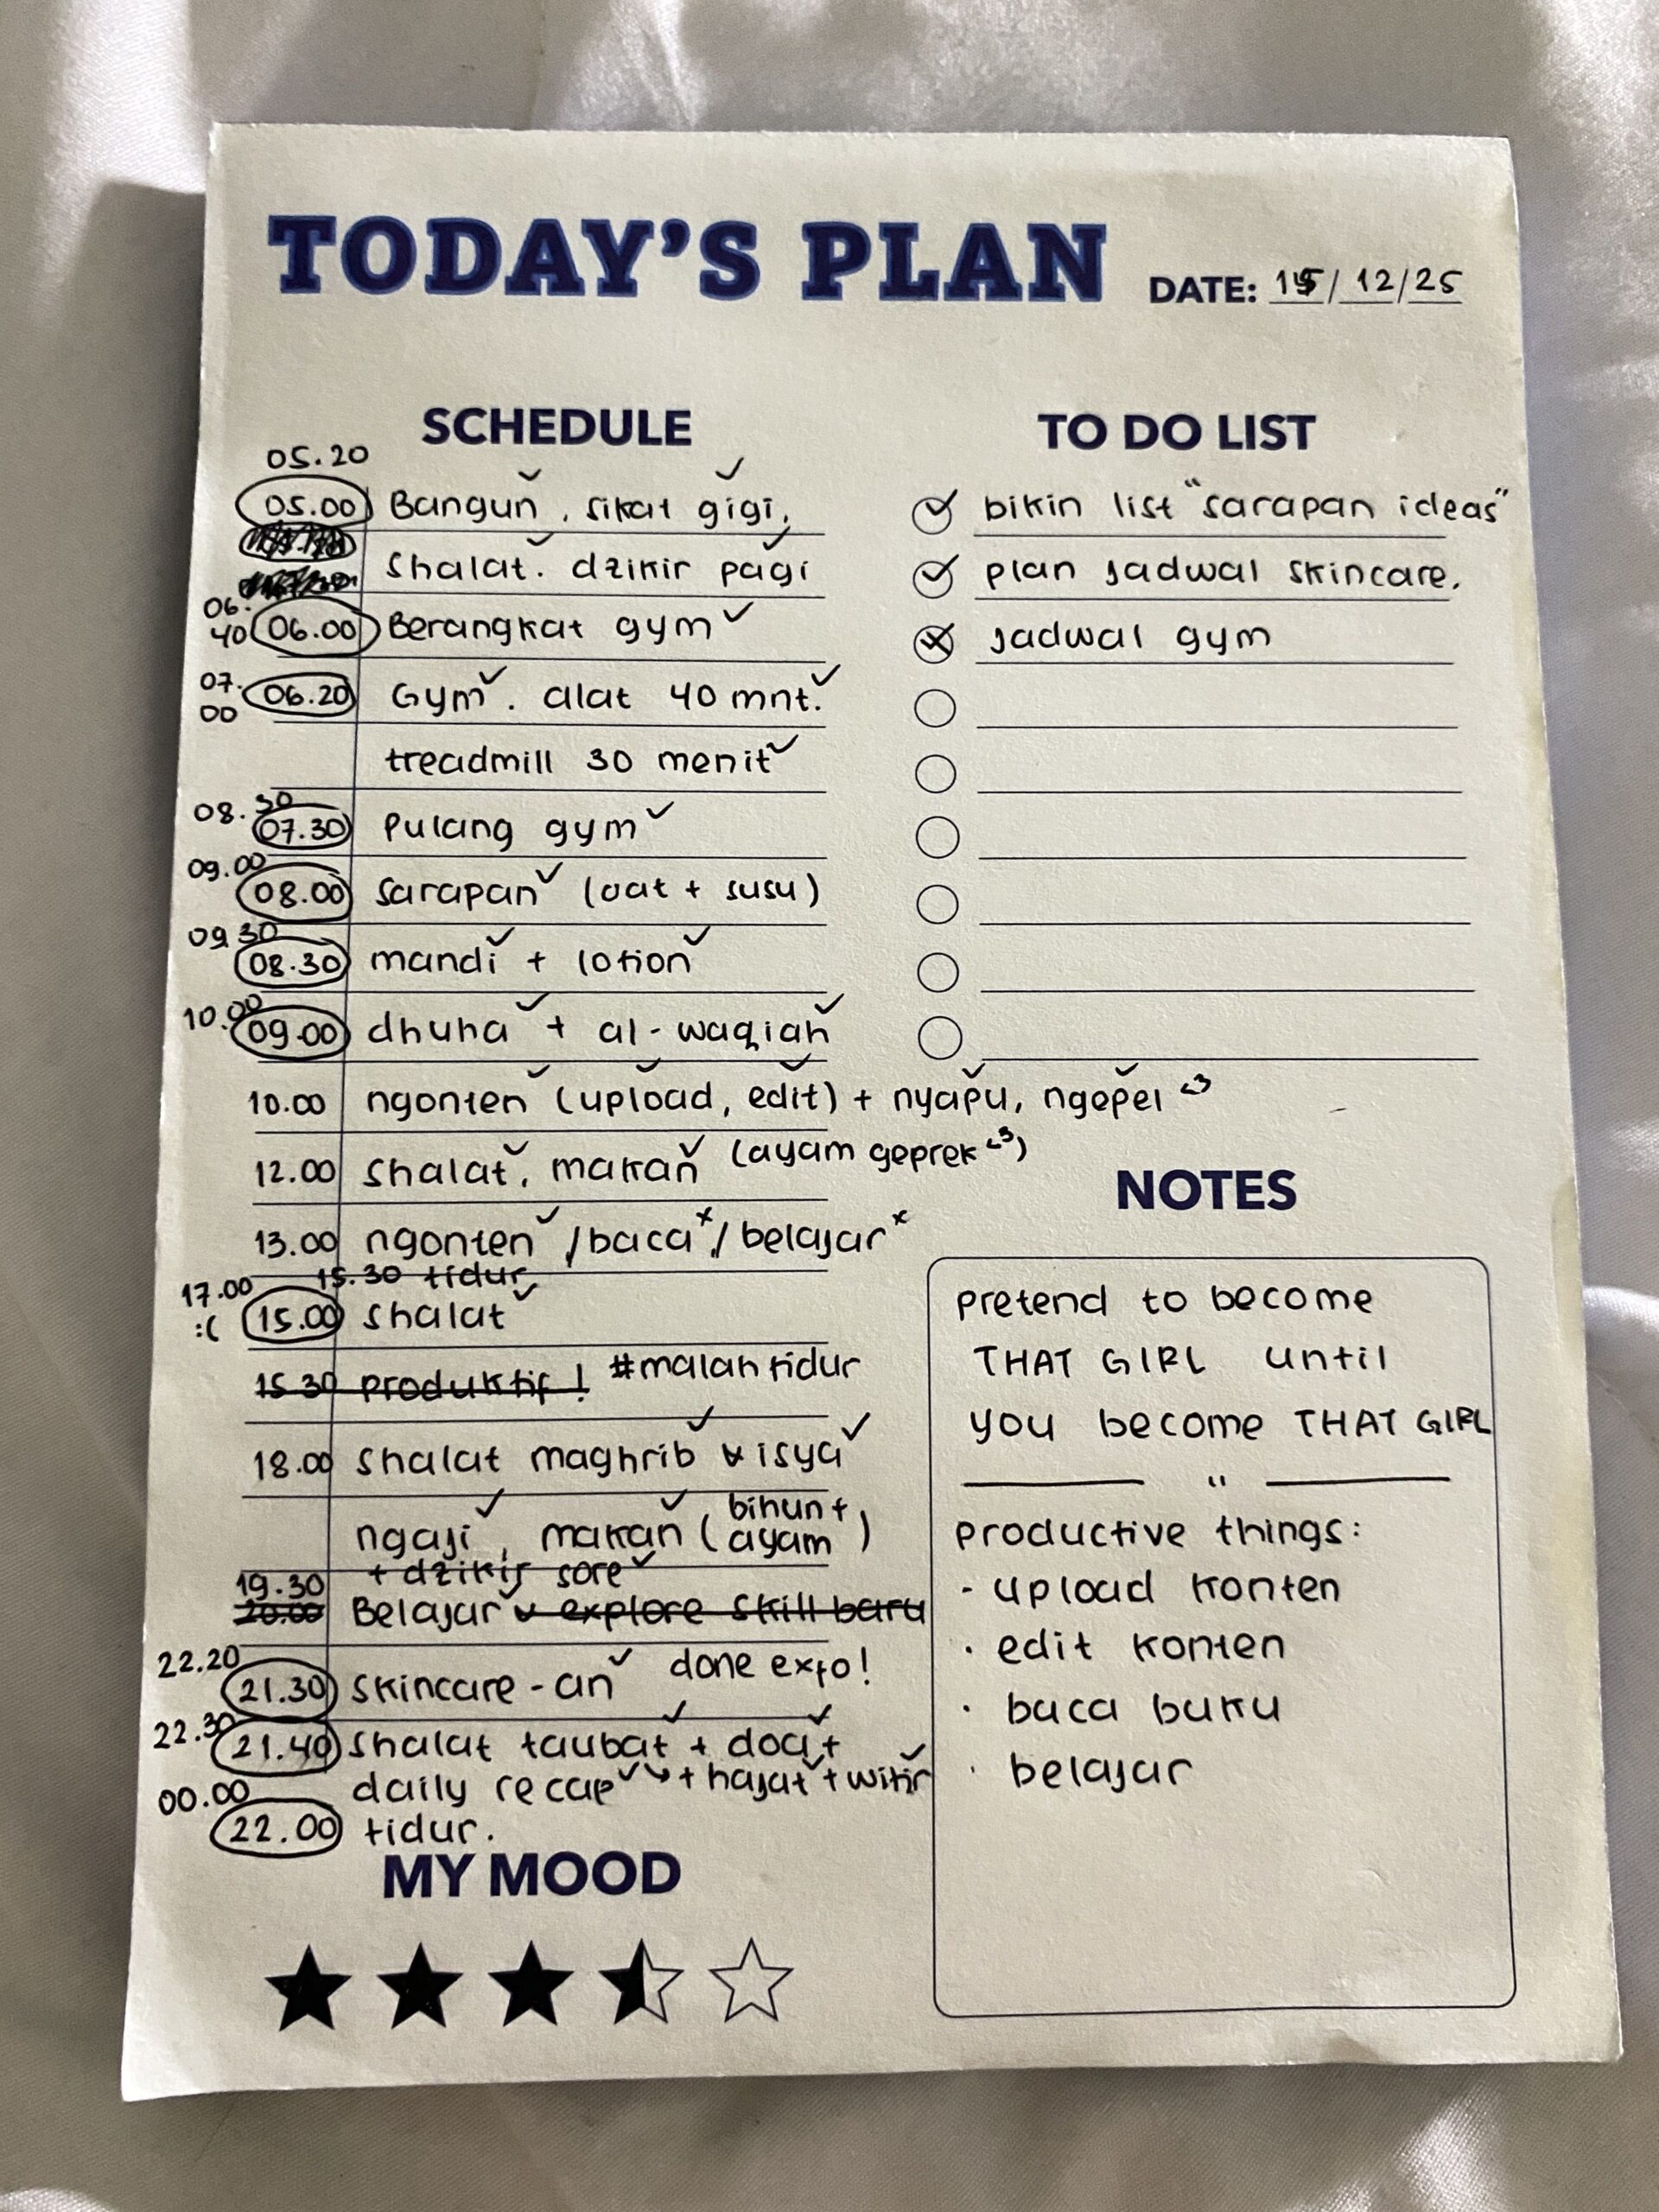 TODAY'S PLAN
DATE: 15/12/25
SCHEDULE
05.20
05.00 Bangun, sikat gigi,
shalat. dzikir pagi
06.40 06.00 Berangkat gym
07.00 06.20 Gym. alat 40 mnt.
treadmill 30 menit
08.30 07.30 pulang gym
09.00 08.00 sarapan (oat + susu)
09.30 08.30 mandi + lotion
10.00 09.00 dhuha + al-waqiah
10.00 ngonten (upload, edit) + nyapu, ngepel <3
12.00 shalat, makan (ayam geprek <3)
13.00 ngonten / baca x / belajar x
15.30 tidur
17.00 :( 15.00 shalat
15.30 produktif! #malah tidur
18.00 shalat maghrib & isya
ngaji, makan (bihun + ayam)
+ dzikir sore
19.30
20.00 Belajar & explore skill baru
22.20 21.30 skincare-an done exfo!
22.30 21.40 shalat taubat + doa +
daily recap ↳ + hajat + witir
00.00 22.00 tidur.
MY MOOD
TO DO LIST
bikin list "sarapan ideas"
plan jadwal skincare.
jadwal gym
NOTES
pretend to become
THAT GIRL until
you become THAT GIRL
"
productive things:
- upload konten
· edit konten
· baca buku
· belajar